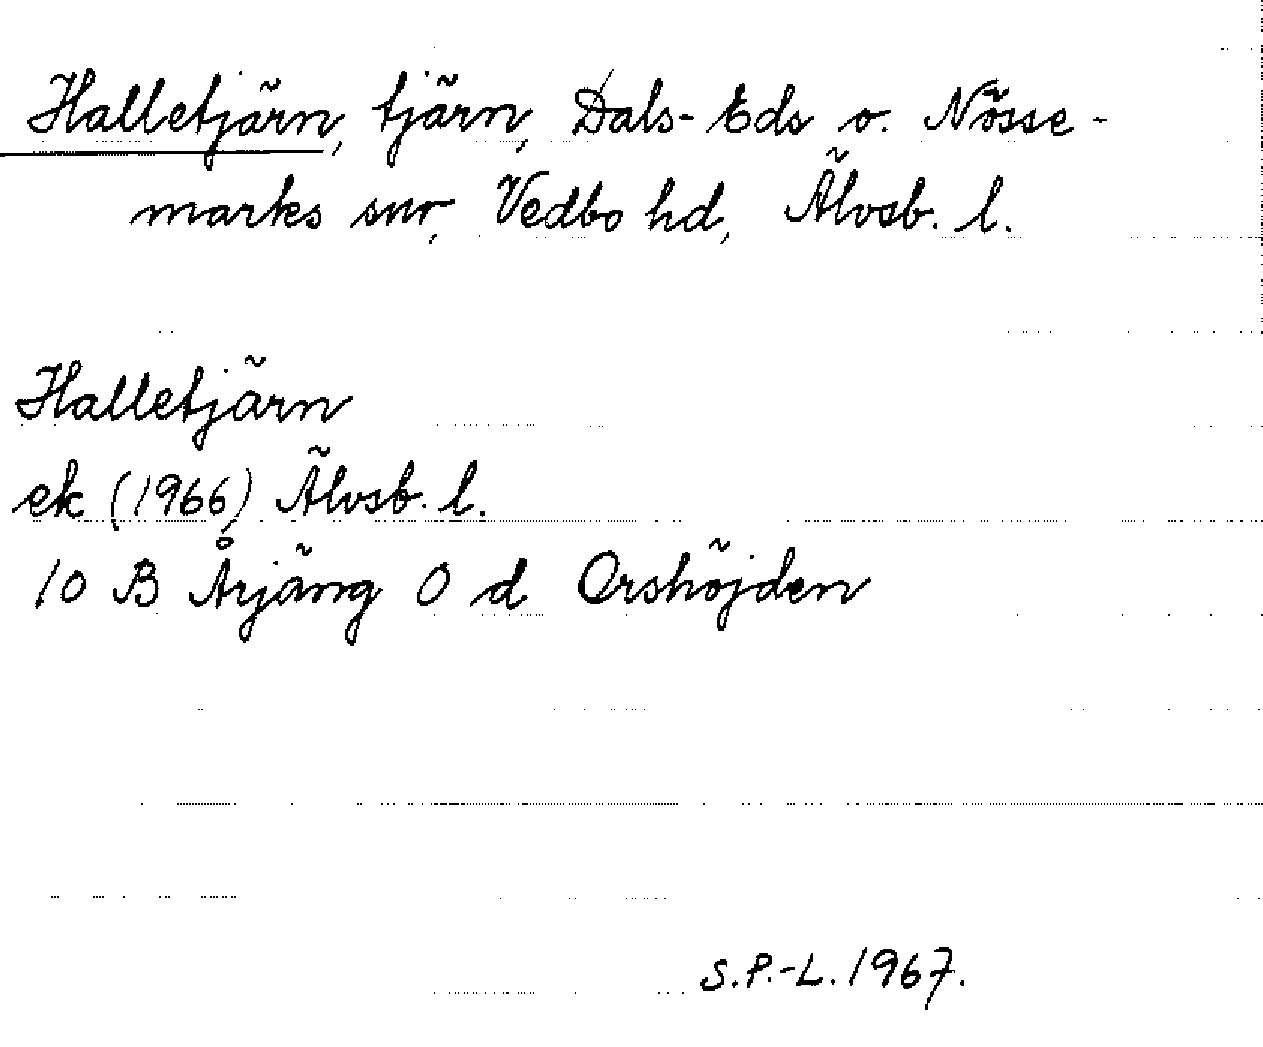 Halletjärn, tjärn, Dals-Eds o. Nösse-
marks snr, Vedbo hd, Älvsb. l.
Halletjärn
ek (1966) Älvsb. l.
10 B Årjäng 0 d Orshöjden
S.P.-L. 1967.